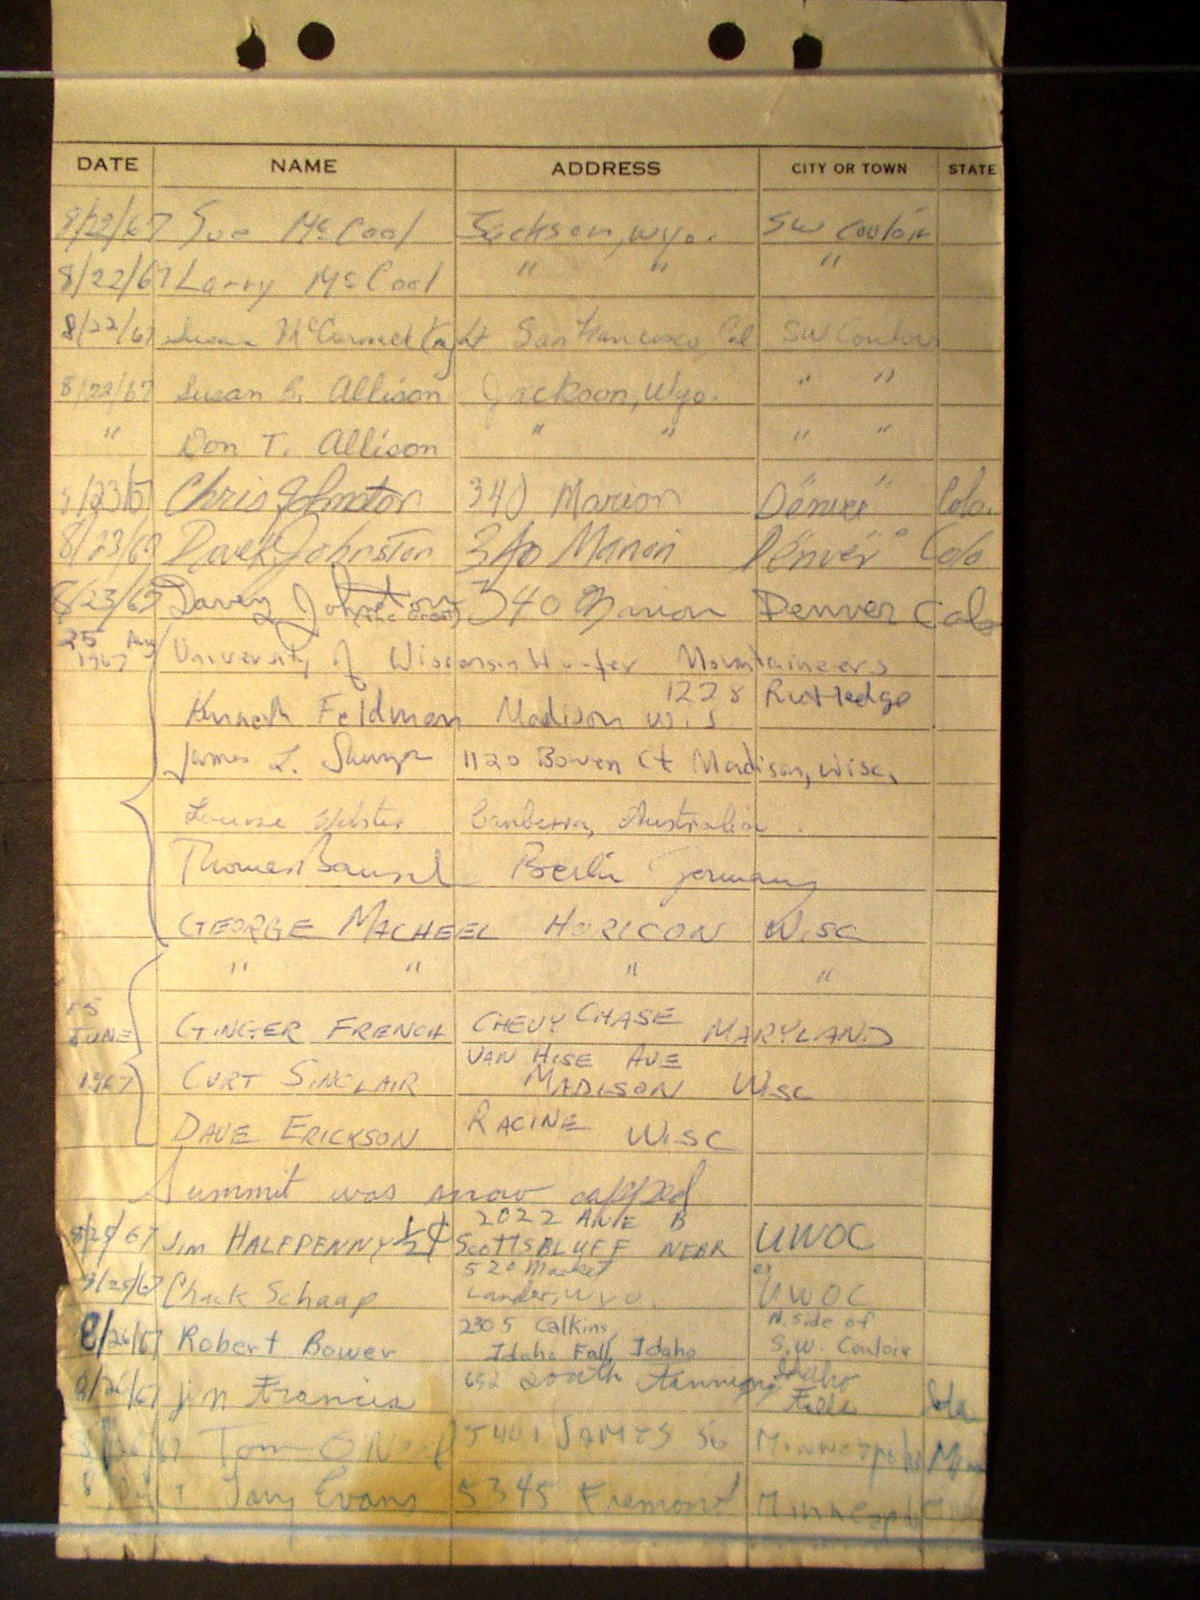 DATE NAME ADDRESS CITY OR TOWN STATE
8/22/67 Sue McCool Jackson, Wyo. SW Couloir
8/22/67 Larry McCool " " "
8/22/67 Susan McCormel San Francisco, Cal SW Couloir
8/22/67 Susan B. Allison Jackson, Wyo. " "
" Don T. Allison " " " "
8/23/67 Chris Johnston 340 Marion Denver Colo.
8/23/67 Johnston 340 Marion Denver Colo
8/23/67 Davey Johnston 340 Marion Denver Colo
25 Aug 1967 University of Wisconsin Hoofer Mountaineers
1228 Rutledge
Kenneth Feldman Madison Wis
James L. 1120 Bowen Ct Madison, Wisc.
Louise Webster Canberra, Australia.
Thomas Berlin Germany
GEORGE MACHEEL HORICON WISC
" " " "
JUNE GINGER FRENCH CHEVY CHASE MARYLAND
VAN HISE AVE
1967 CURT SINCLAIR MADISON WISC
DAVE ERICKSON RACINE WISC
Summit was snow capped
2022 AVE B
8/25/67 JIM HALFPENNY ½¢ SCOTTSBLUFF NEBR UWOC
520 Market
8/25/67 Chuck Schaap Lander, Wyo. UWOC
2305 Calkins, N. side of
8/26/67 Robert Bower Idaho Falls, Idaho S.W. Couloir
8/26/67 Jim Francis 652 South Idaho Falls Ida.
Tom O'Neil 5401 JAMES So Minneapolis Minn
Evans 5345 Fremont Minneapolis